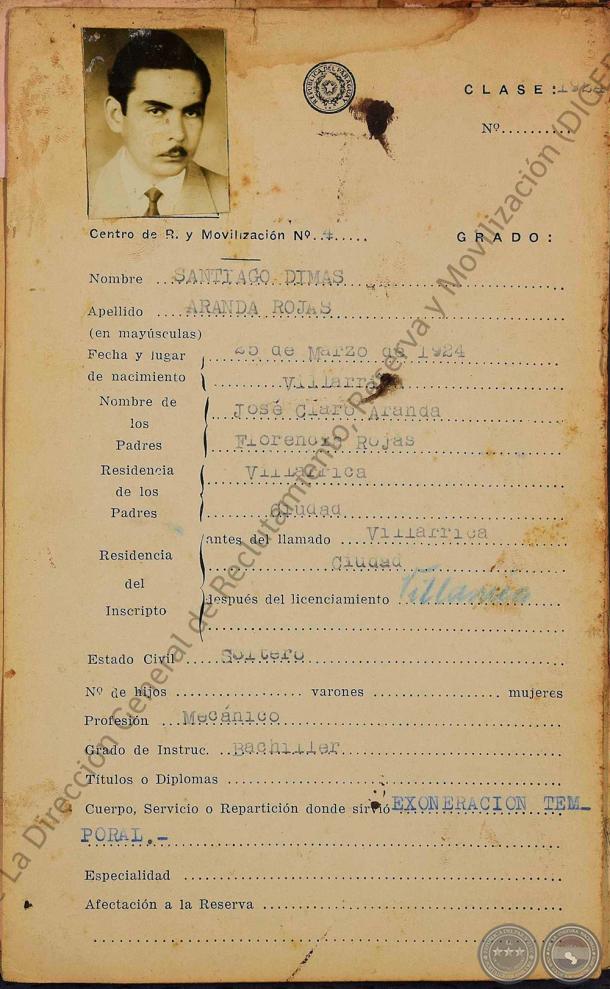 REPUBLICA DEL PARAGUAY
CLASE: 1924
Nº..........
Centro de R. y Movilización Nº..4.....
GRADO:
Nombre ... SANTIAGO DIMAS
Apellido .... ARANDA ROJAS
(en mayúsculas)
Fecha y lugar de nacimiento
25 de Marzo de 1924
Villarrica
Nombre de los Padres
José Claro Aranda
Florencia Rojas
Residencia de los Padres
Villarrica
Ciudad
Residencia del Inscripto
antes del llamado ... Villarrica
Ciudad
después del licenciamiento Villarrica
Estado Civil.... Soltero
Nº de hijos .................... varones .................... mujeres
Profesión ... Mecánico
Grado de Instruc. .. Bachiller
Títulos o Diplomas
Cuerpo, Servicio o Repartición donde sirvió EXONERACION TEM_
PORAL.-
Especialidad
Afectación a la Reserva
La Dirección General de Reclutamiento, Reserva y Movilización